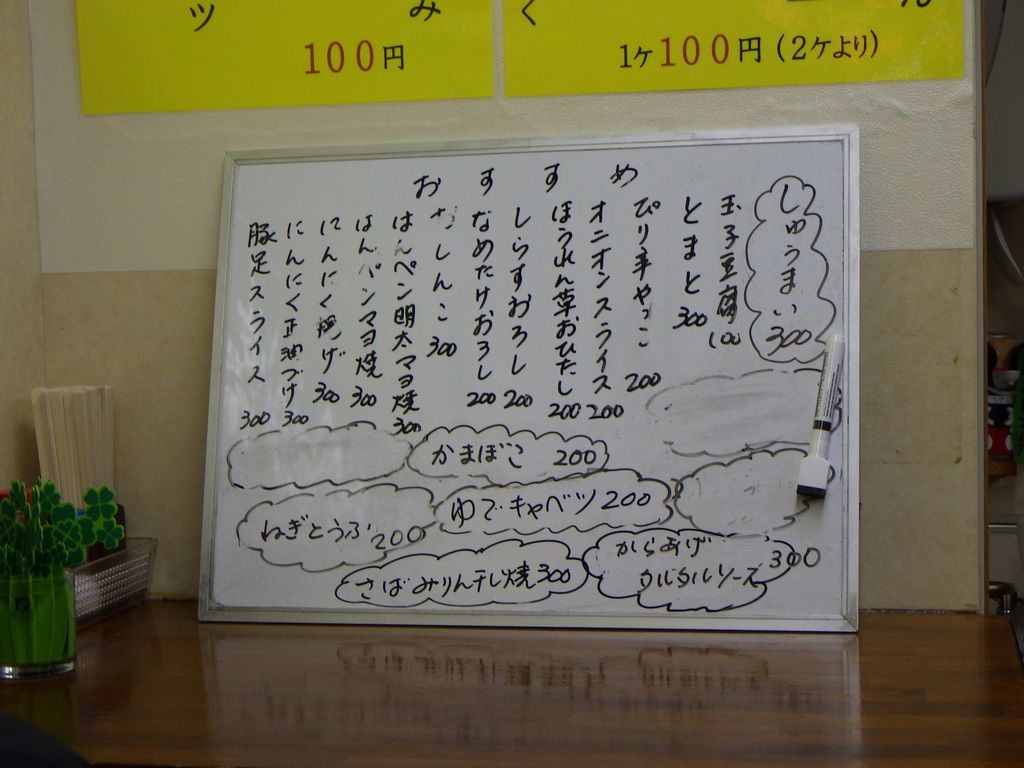 ツ み
100円
く
1ヶ100円(2ケより)
おすすめ
しゅうまい 300
玉子豆腐 100
とまと 300
ぴり辛やっこ 200
オニオンスライス 200
ほうれん草おひたし 200
しらすおろし 200
なめたけおろし 200
おしんこ 300
はんペン明太マヨ焼 300
はんペンマヨ焼 300
にんにく揚げ 300
にんにく正油づけ 300
豚足スライス 300
かまぼこ 200
ゆでキャベツ 200
ねぎとうふ 200
さばみりん干し焼 300
からあげ
タルタルソース 300